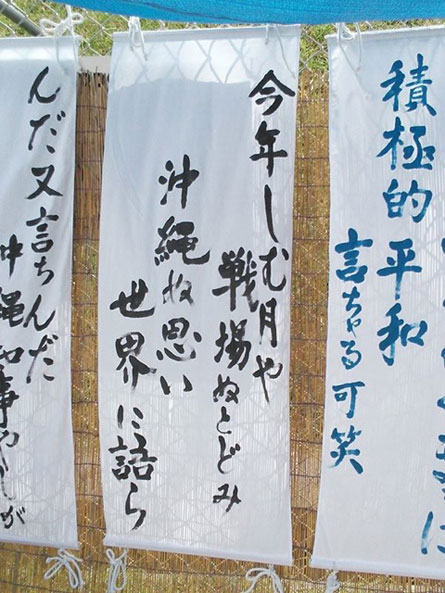 積極的平和
言ちゃる可笑
今年しむ月や
戦場ぬとどみ
沖縄ぬ思い
世界に語ら
んだ又言ちんだ
沖縄
事やしが